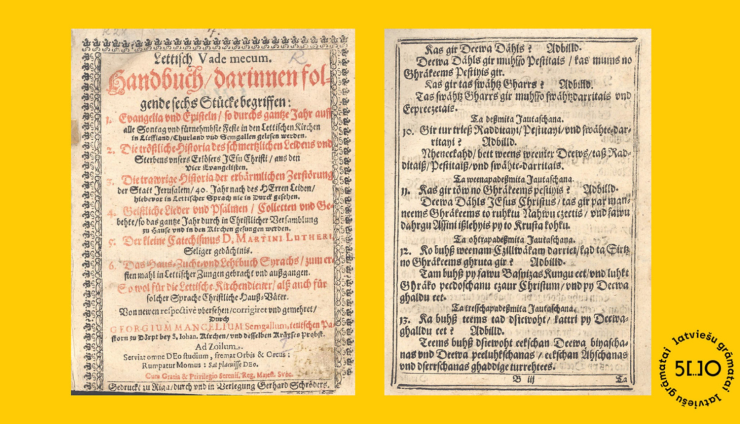 Lettisch Vade mecum.
Handbuch/ darinnen fol-
gende sechs Stücke begriffen:
1. Evangelia vnd Episteln/ so durchs gantze Jahr auff
alle Sontag vnd fürnehmbste Feste in den Lettischen Kirchen
in Lieffland/ Churland vnd Semgallen gelesen werden.
2. Die tröstliche Historia des schmertzlichen Leidens vnd
Sterbens vnsers Erlösers JEsu Christi/ aus den
Vier Evangelisten.
3. Die trawrige Historia der erbärmlichen Zerstörung
der Statt Jerusalem/ 40. Jahr nach des HErren Leiden/
hiebevor in Lettischer Sprach nie in Druck gesehen.
4. Geistliche Lieder vnd Psalmen/ Collecten vnd Ge-
behte/ so das gantze Jahr durch in Christlicher Versamblung
zu Hause vnd in den Kirchen gesungen werden.
5. Der kleine Catechismus D. MARTINI LUTHERI,
Seliger gedächtnis.
6. Das Haus-Zucht- vnd Lehrbuch Syrachs/ zum er-
sten mahl in Lettischer Zungen gebracht vnd außgangen.
So wol für die Lettische Kirchendiener/ alß auch für
solcher Sprache Christliche Hauß-Väter.
Von newen respective vbersehen/ corrigiret vnd gemehret/
Durch
GEORGIUM MANCELIUM Semgallum, teutschen Pa-
storn zu Dörpt bey S. Johan. Kirchen/ vnd desselben Kräyses Probst.
Ad Zoilum.
Serviat omne DEo studium, fremat Orbis & Orcus:
Rumpatur Momus: Sat placuisse DEo.
Cum Gratia & Privilegio Sereniss. Reg. Maiest. Svec.
Gedruckt zu Riga/ durch vnd in Verlegung Gerhard Schröders.
Kas gir Deewa Dähls? Adbilld.
Deewa Dähls gir muhsso Pestitais/ kas mums no
Ghräkeems Pestiyis gir.
Kas gir tas swähtz Gharrs? Adbilld.
Tas swähtz Gharrs gir muhsso swähtzdarritais vnd
Eepreezetais.
Ta deßmita Jautaschana.
10. Gir tur trieß Radditayi/ Pestitayi/ vnd swähte-dar-
ritayi? Adbilld.
Nheneekahd/ bett weens weenier Deews/ taß Rad-
ditaiß/ Pestitaiß/ vnd swähte-darritais.
Ta weenapadeßmita Jautaschana.
11. Kas gir töw no Ghräkeems pestiyis? Adbilld.
Deewa Dähls JEsus Christus/ tas gir par man-
neems Ghräkeems to ruhktu Nahwi czeetis/ vnd sawu
dahrgu Assini isslehyis py to Krusta kohku.
Ta ohtrapadeßmita Jautaschana.
12. Ko buhß weenam Czillwäkam darriet/ kad ta Sirtz
no Ghräkeems ghruta gir? Adbilld.
Tam buhß py sawu Basnizas Kungu eet/ vnd luhkt
Ghräko peedoschanu czaur Christum/ vnd py Deewa
ghalldu eet.
Ta tresschapadeßmita Jautaschana.
13. Ka buhß teems tad dsiewoht/ kattri py Deewa-
ghalldu eet? Adbilld.
Teems buhß dsiewoht eekschan Deewa biyascha-
nas vnd Deewa peeluhkschanas/ eekschan Ahschanas
vnd dserrschanas ghaddige turrehtees.
B iij
Ta
latviešu grāmatai
latviešu grāmatai